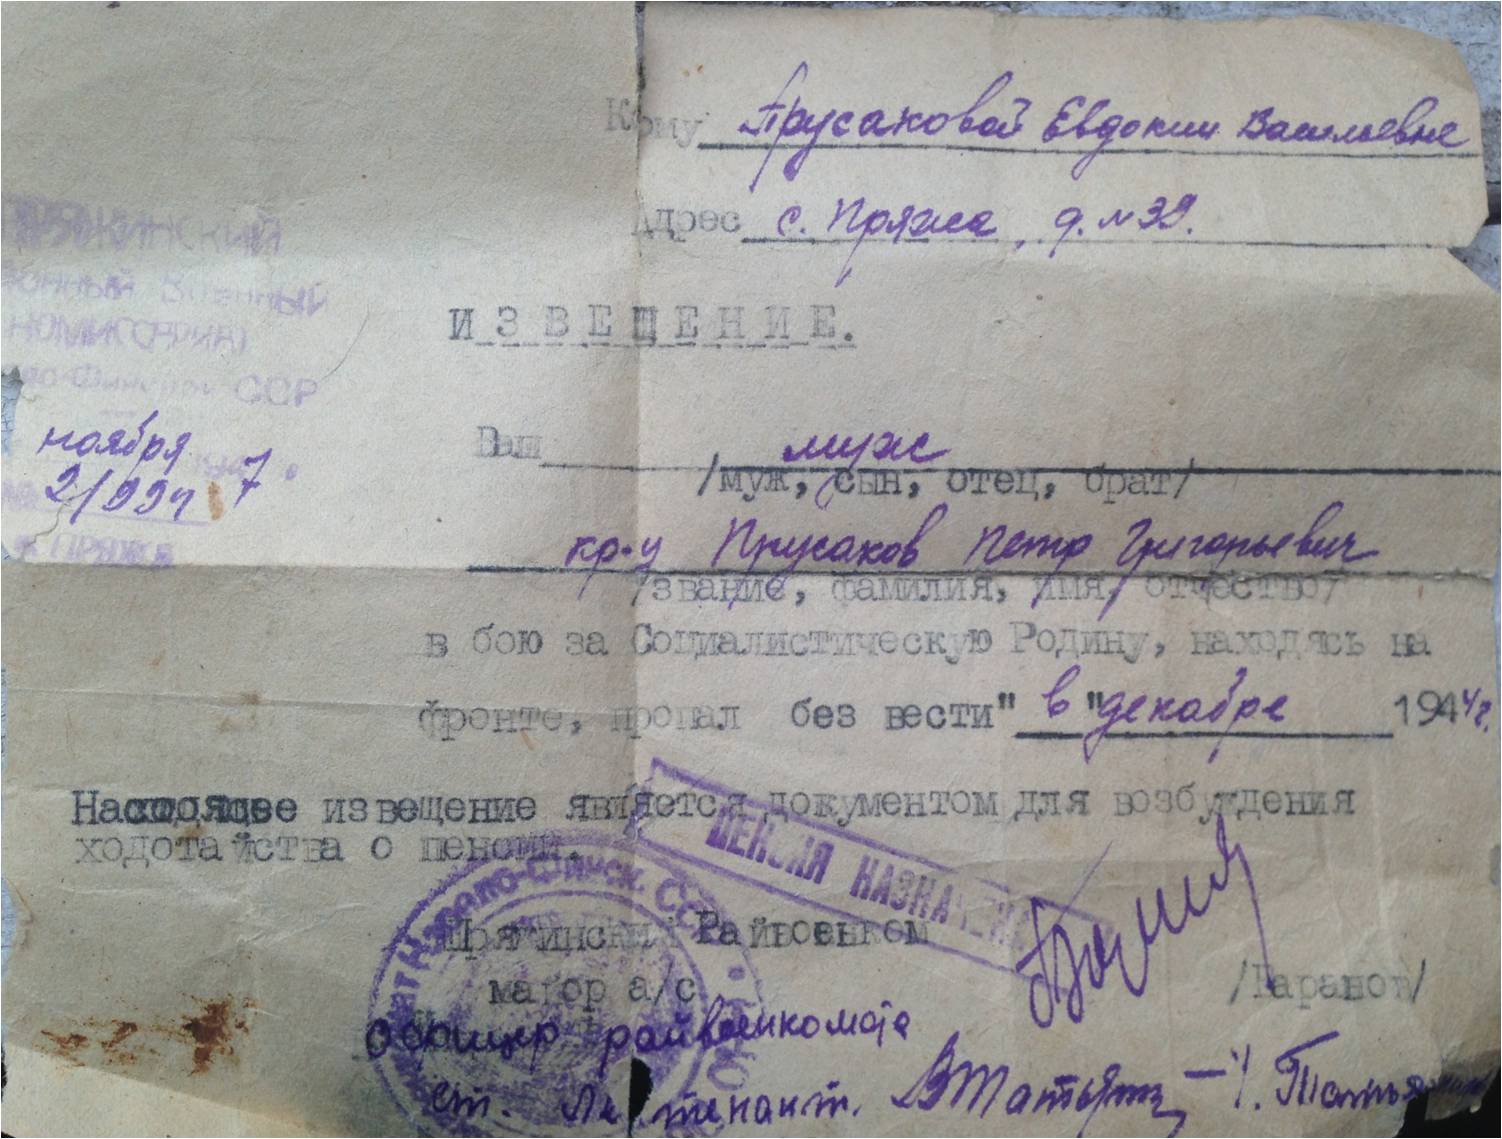 Кому Прусаковой Евдокии Васильевне
Адрес с. Пряжа, д. № 39.
ПРЯЖИНСКИЙ
Районный Военный
КОМИССАРИАТ
Финской ССР
ноября 1947
№ 2/994
с. ПРЯЖА
ИЗВЕЩЕНИЕ.
Ваш муж
/муж, сын, отец, брат/
кр-ц Прусаков Петр Григорьевич
/звание, фамилия, имя, отчество/
в бою за Социалистическую Родину, находясь на
фронте, пропал без вести" в "декабре 1944г.
Настоящее извещение является документом для возбуждения
ходотайства о пенсии.
ПЕНСИЯ НАЗНАЧЕНА
Пряжинский Райвоенком
майор а/с /Таранов/
Офицер райвоенкомата
ст. Лейтенант.